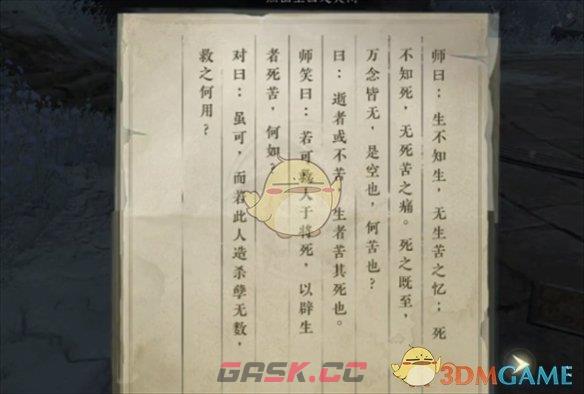 师曰：生不知生，无生苦之忆；死
不知死，无死苦之痛。死之既至，
万念皆无，是空也，何苦也？
曰：逝者或不苦，生者苦其死也。
师笑曰：若可救人于将死，以辟生
者死苦，何如？
对曰：虽可，而若此人造杀孽无数，
救之何用？
GASK.CC
3DMGAME